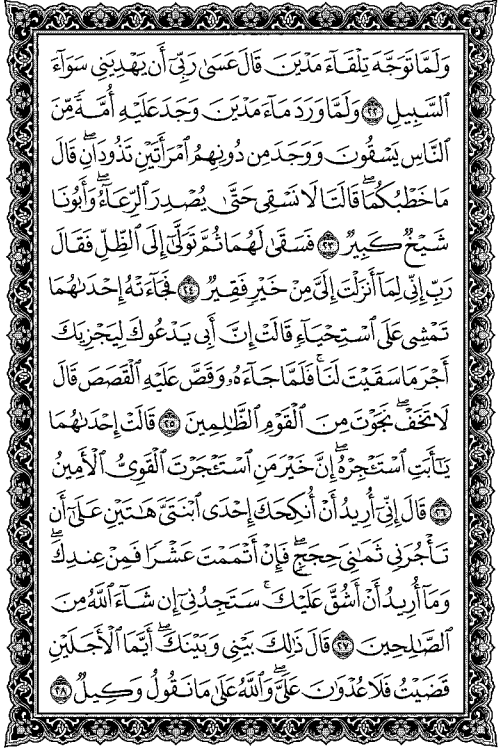 وَلَمَّا تَوَجَّهَ تِلْقَآءَ مَدْيَنَ قَالَ عَسَىٰ رَبِّىٓ أَن يَهْدِيَنِى سَوَآءَ
ٱلسَّبِيلِ ٢٢ وَلَمَّا وَرَدَ مَآءَ مَدْيَنَ وَجَدَ عَلَيْهِ أُمَّةً مِّنَ
ٱلنَّاسِ يَسْقُونَ وَوَجَدَ مِن دُونِهِمُ ٱمْرَأَتَيْنِ تَذُودَانِۖ قَالَ
مَا خَطْبُكُمَاۖ قَالَتَا لَا نَسْقِى حَتَّىٰ يُصْدِرَ ٱلرِّعَآءُۖ وَأَبُونَا
شَيْخٌ كَبِيرٌ ٢٣ فَسَقَىٰ لَهُمَا ثُمَّ تَوَلَّىٰٓ إِلَى ٱلظِّلِّ فَقَالَ
رَبِّ إِنِّى لِمَآ أَنزَلْتَ إِلَىَّ مِنْ خَيْرٍ فَقِيرٌ ٢٤ فَجَآءَتْهُ إِحْدَىٰهُمَا
تَمْشِى عَلَى ٱسْتِحْيَآءٍ قَالَتْ إِنَّ أَبِى يَدْعُوكَ لِيَجْزِيَكَ
أَجْرَ مَا سَقَيْتَ لَنَاۚ فَلَمَّا جَآءَهُۥ وَقَصَّ عَلَيْهِ ٱلْقَصَصَ قَالَ
لَا تَخَفْۖ نَجَوْتَ مِنَ ٱلْقَوْمِ ٱلظَّـٰلِمِينَ ٢٥ قَالَتْ إِحْدَىٰهُمَا
يَـٰٓأَبَتِ ٱسْتَـْٔجِرْهُۖ إِنَّ خَيْرَ مَنِ ٱسْتَـْٔجَرْتَ ٱلْقَوِىُّ ٱلْأَمِينُ
٢٦ قَالَ إِنِّىٓ أُرِيدُ أَنْ أُنكِحَكَ إِحْدَى ٱبْنَتَىَّ هَـٰتَيْنِ عَلَىٰٓ أَن
تَأْجُرَنِى ثَمَـٰنِىَ حِجَجٍۖ فَإِنْ أَتْمَمْتَ عَشْرًا فَمِنْ عِندِكَۖ
وَمَآ أُرِيدُ أَنْ أَشُقَّ عَلَيْكَۚ سَتَجِدُنِىٓ إِن شَآءَ ٱللَّهُ مِنَ
ٱلصَّـٰلِحِينَ ٢٧ قَالَ ذَٰلِكَ بَيْنِى وَبَيْنَكَۖ أَيَّمَا ٱلْأَجَلَيْنِ
قَضَيْتُ فَلَا عُدْوَٰنَ عَلَىَّۖ وَٱللَّهُ عَلَىٰ مَا نَقُولُ وَكِيلٌ ٢٨